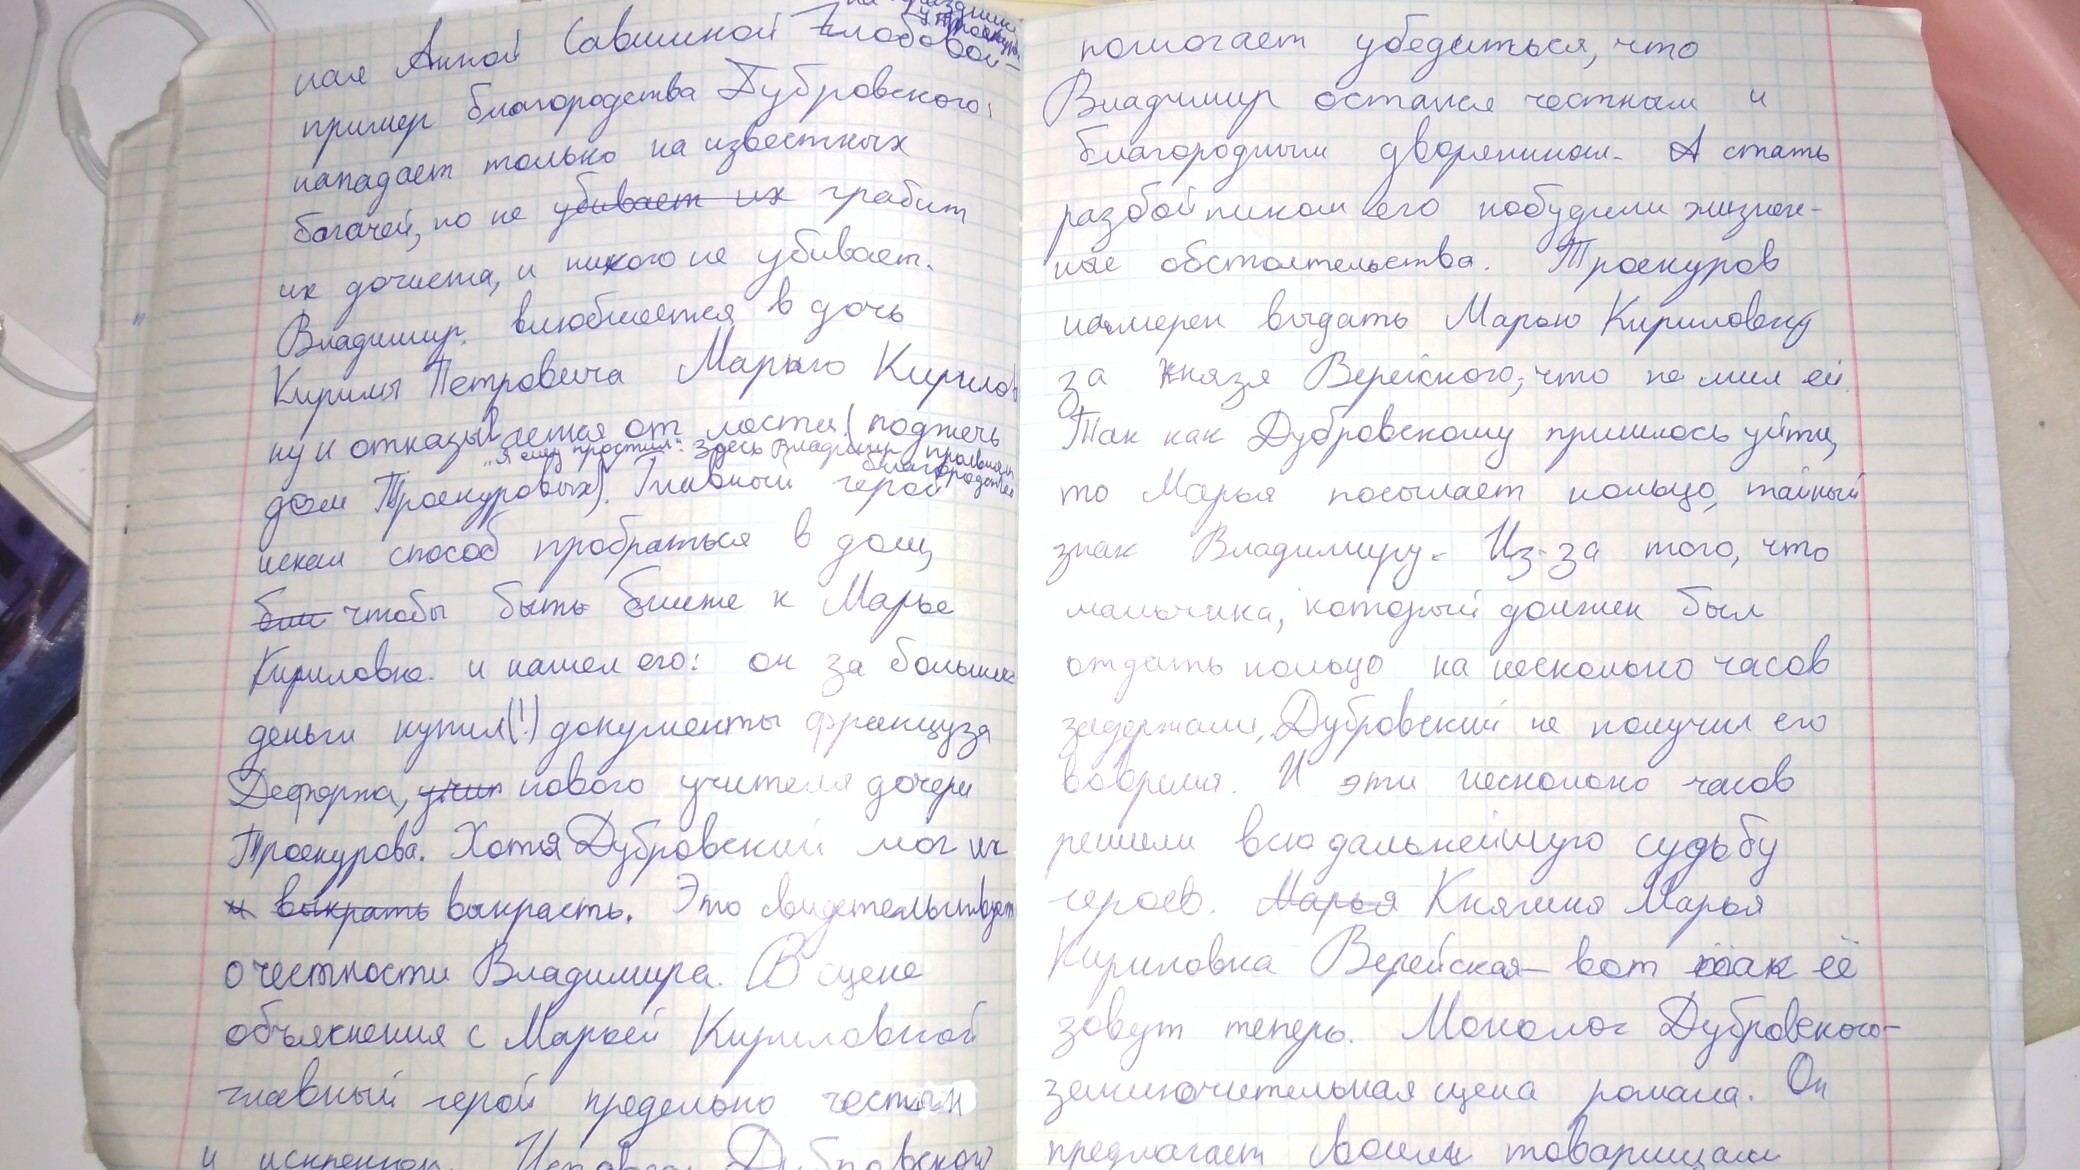 на празднике
у Троекур
ная Анной Савишной Глобовой –
пример благородства Дубровского:
нападает только на известных
богачей, но не убивает их грабит
их дочиста, и никого не убивает.
Владимир влюбляется в дочь
Кирилы Петровича Марью Кирилов
ну и отказывается от мести (поджечь
„Я ему простил". Здесь Владимир проявляет
благородство
дом Троекуровых). Главный герой
искал способ пробраться в дом,
бли чтобы быть ближе к Марье
Кириловне и нашел его: он за большие
деньги купил(!) документы француза
Дефоржа, учит нового учителя дочери
Троекурова. Хотя Дубровский мог их
и выкрать выкрасть. Это свидетельствует
о честности Владимира. В сцене
объяснения с Марьей Кириловной
главный герой предельно честен
и искренен. Исповедь Дубровского
помогает убедиться, что
Владимир остался честным и
благородным дворянином. А стать
разбойником его побудили жизнен-
ные обстоятельства. Троекуров
намерен выдать Марью Кириловну
за князя Верейского, что не мил ей.
Так как Дубровскому пришлось уйти,
то Марья посылает кольцо, тайный
знак Владимиру. Из-за того, что
мальчика, который должен был
отдать кольцо на несколько часов
задержали, Дубровский не получил его
вовремя. И эти несколько часов
решили всю дальнейшую судьбу
героев. Марья Княгиня Марья
Кириловна Верейская – вот как её
зовут теперь. Монолог Дубровского–
заключительная сцена романа. Он
предлагает своим товарищам